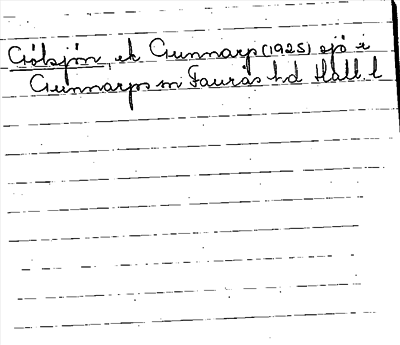 Gölsjön, ek Gunnarp (1925) sjö i
Gunnarps sn Faurås hd Hall. l